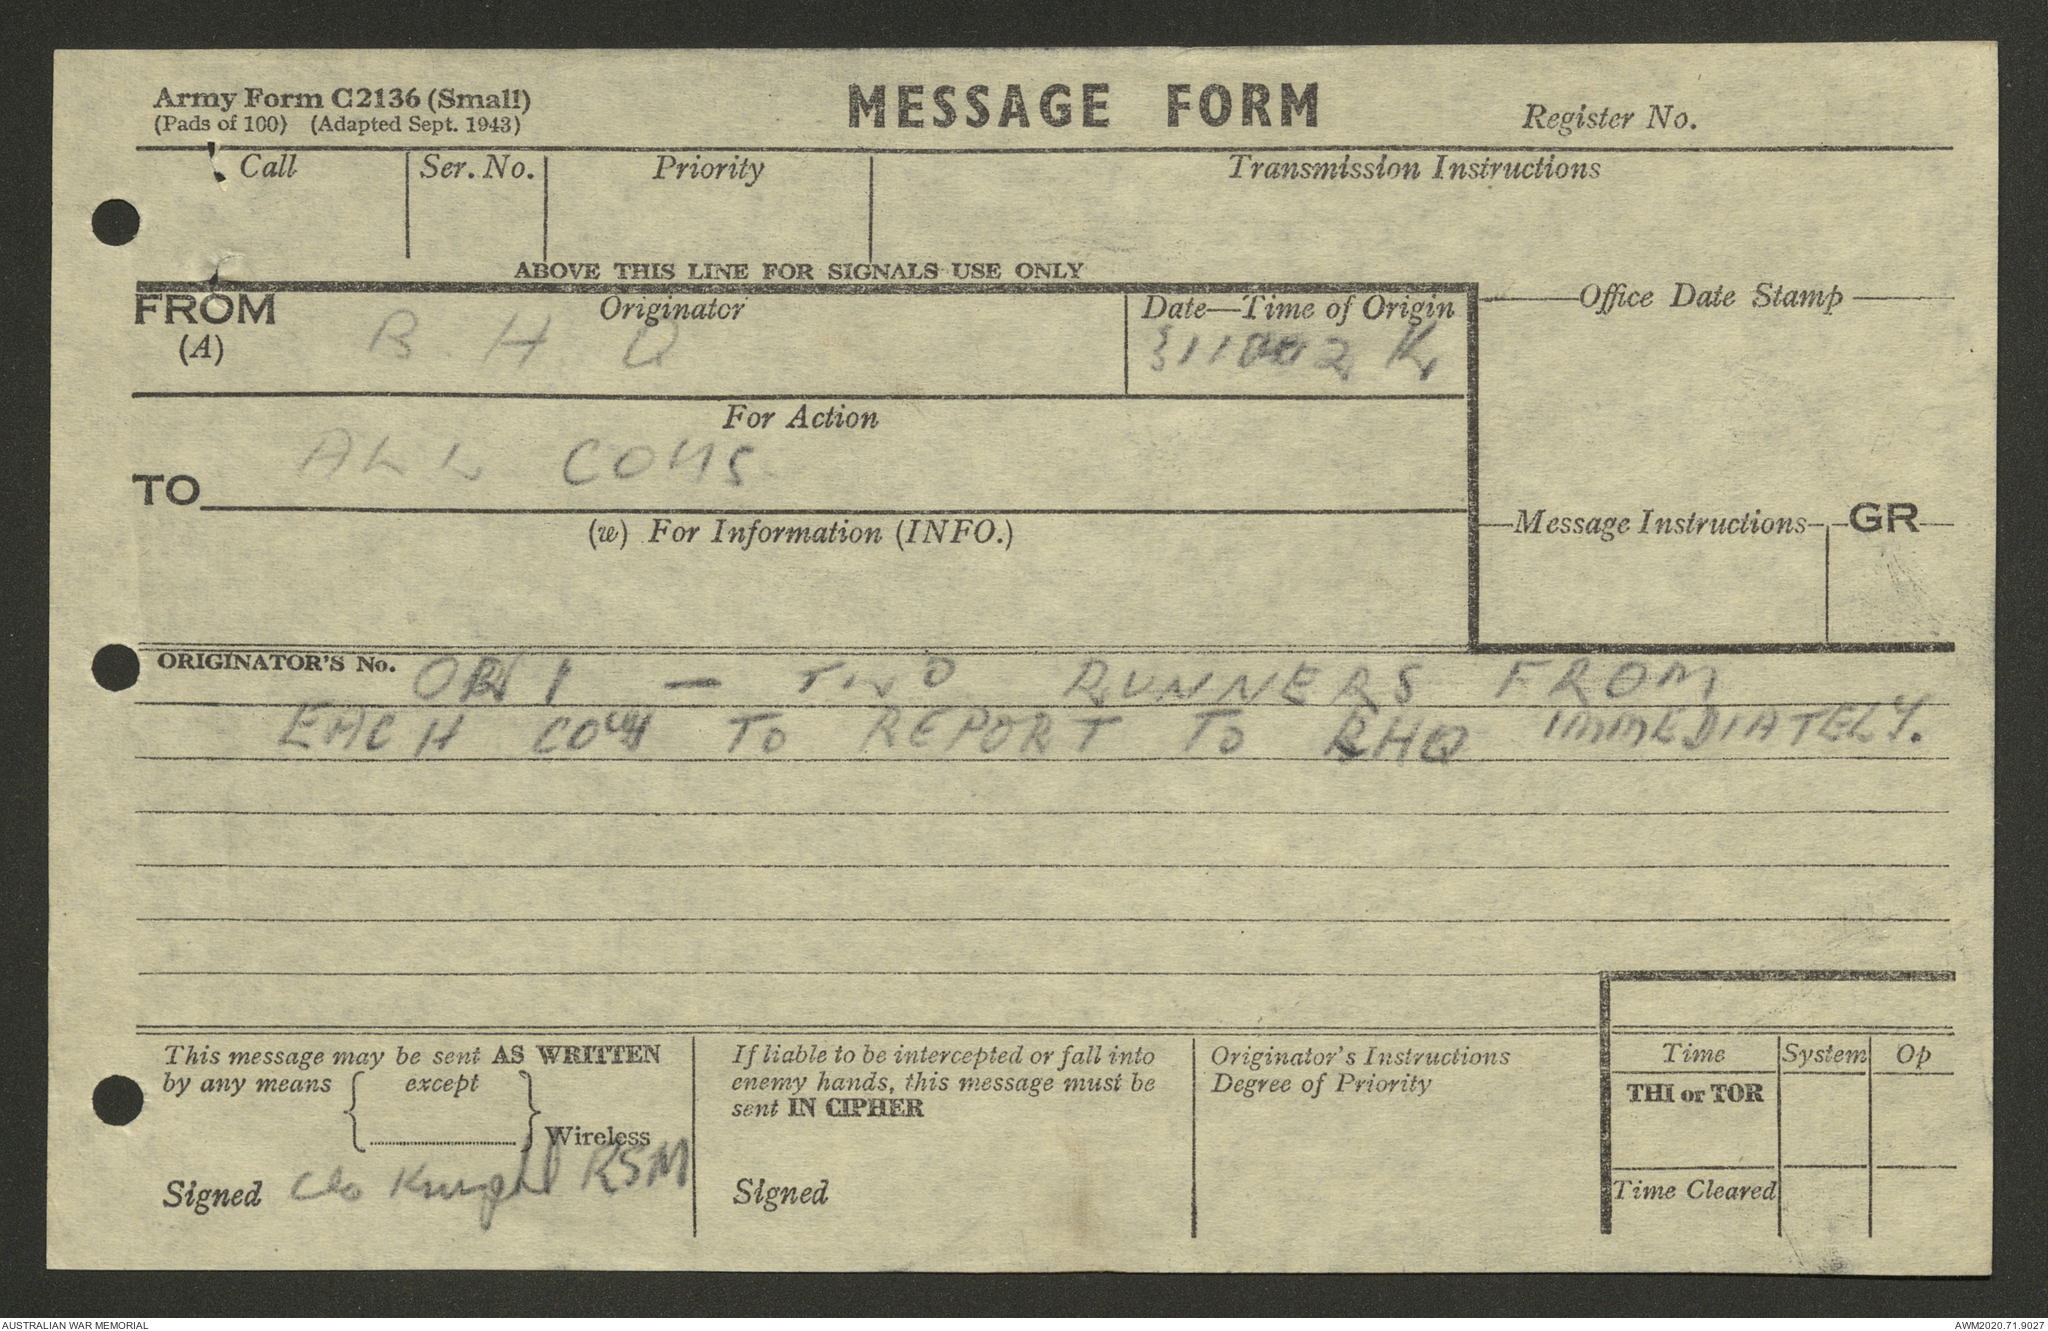 Army Form C2136 (Small)
(Pads of 100) (Adapted Sept. 1943)
MESSAGE FORM
Register No.
Call
Ser. No.
Priority
Transmission Instructions
ABOVE THIS LINE FOR SIGNALS USE ONLY
FROM
(A)
Originator
B H Q
Date—Time of Origin
K
Office Date Stamp
For Action
ALL COYS
TO
(w) For Information (INFO.)
Message Instructions
GR
ORIGINATOR'S No. 1 — TWO RUNNERS FROM
EACH COY TO REPORT TO BHQ IMMEDIATELY.
This message may be sent AS WRITTEN
by any means { except }
Wireless
Signed Knight RSM
If liable to be intercepted or fall into
enemy hands, this message must be
sent IN CIPHER
Signed
Originator's Instructions
Degree of Priority
Time
System
Op
THI or TOR
Time Cleared
AUSTRALIAN WAR MEMORIAL
AWM2020.71.9027